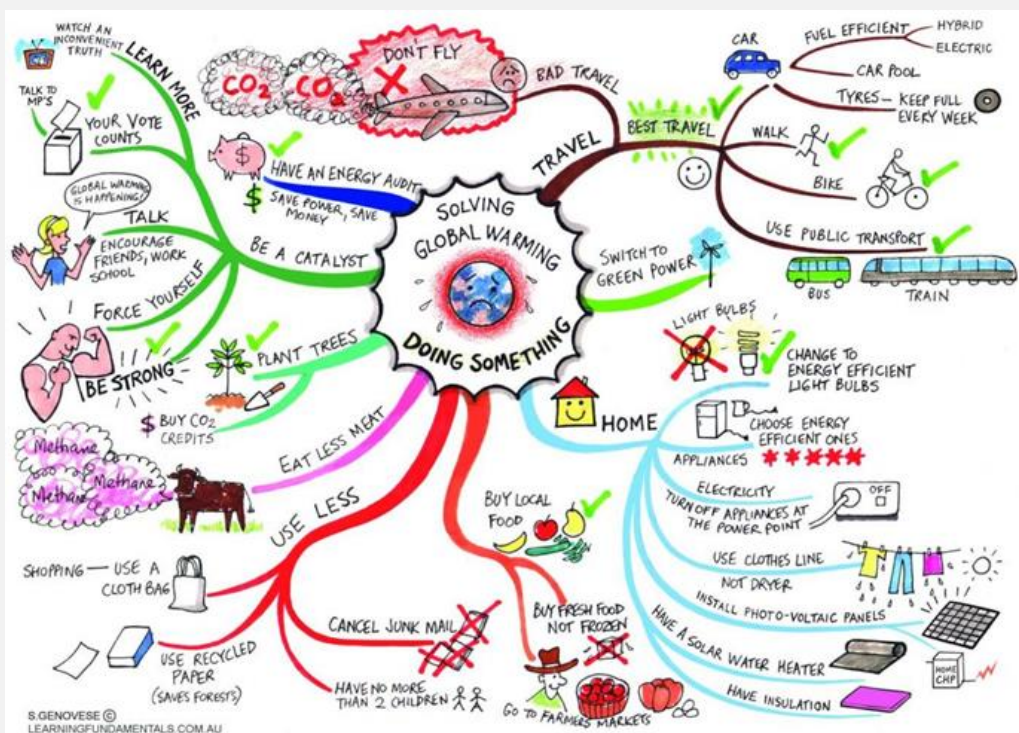 SOLVING
GLOBAL WARMING
DOING SOMETHING
WATCH AN
INCONVENIENT
TRUTH
LEARN MORE
TALK TO
MP'S
YOUR VOTE
COUNTS
GLOBAL WARMING
IS HAPPENING!
TALK
ENCOURAGE
FRIENDS, WORK
SCHOOL
FORCE YOURSELF
BE STRONG
BE A CATALYST
$
HAVE AN ENERGY AUDIT
$ SAVE POWER, SAVE
MONEY
CO2
CO2
DON'T FLY
BAD TRAVEL
TRAVEL
BEST TRAVEL
CAR
FUEL EFFICIENT
HYBRID
ELECTRIC
CAR POOL
TYRES — KEEP FULL
EVERY WEEK
WALK
BIKE
USE PUBLIC TRANSPORT
BUS
TRAIN
SWITCH TO
GREEN POWER
LIGHT BULBS
CHANGE TO
ENERGY EFFICIENT
LIGHT BULBS
HOME
CHOOSE ENERGY
EFFICIENT ONES
APPLIANCES
ELECTRICITY
TURN OFF APPLIANCES AT
THE POWER POINT
OFF
USE CLOTHES LINE
NOT DRYER
INSTALL PHOTO-VOLTAIC PANELS
HOME
CHP
HAVE A SOLAR WATER HEATER
HAVE INSULATION
PLANT TREES
$ BUY CO2
CREDITS
EAT LESS MEAT
Methane
Methane
Methane
USE LESS
SHOPPING — USE A
CLOTH BAG
USE RECYCLED
PAPER
(SAVES FORESTS)
CANCEL JUNK MAIL
HAVE NO MORE
THAN 2 CHILDREN
BUY LOCAL
FOOD
BUY FRESH FOOD
NOT FROZEN
GO TO FARMERS MARKETS
S.GENOVESE ©
LEARNINGFUNDAMENTALS.COM.AU